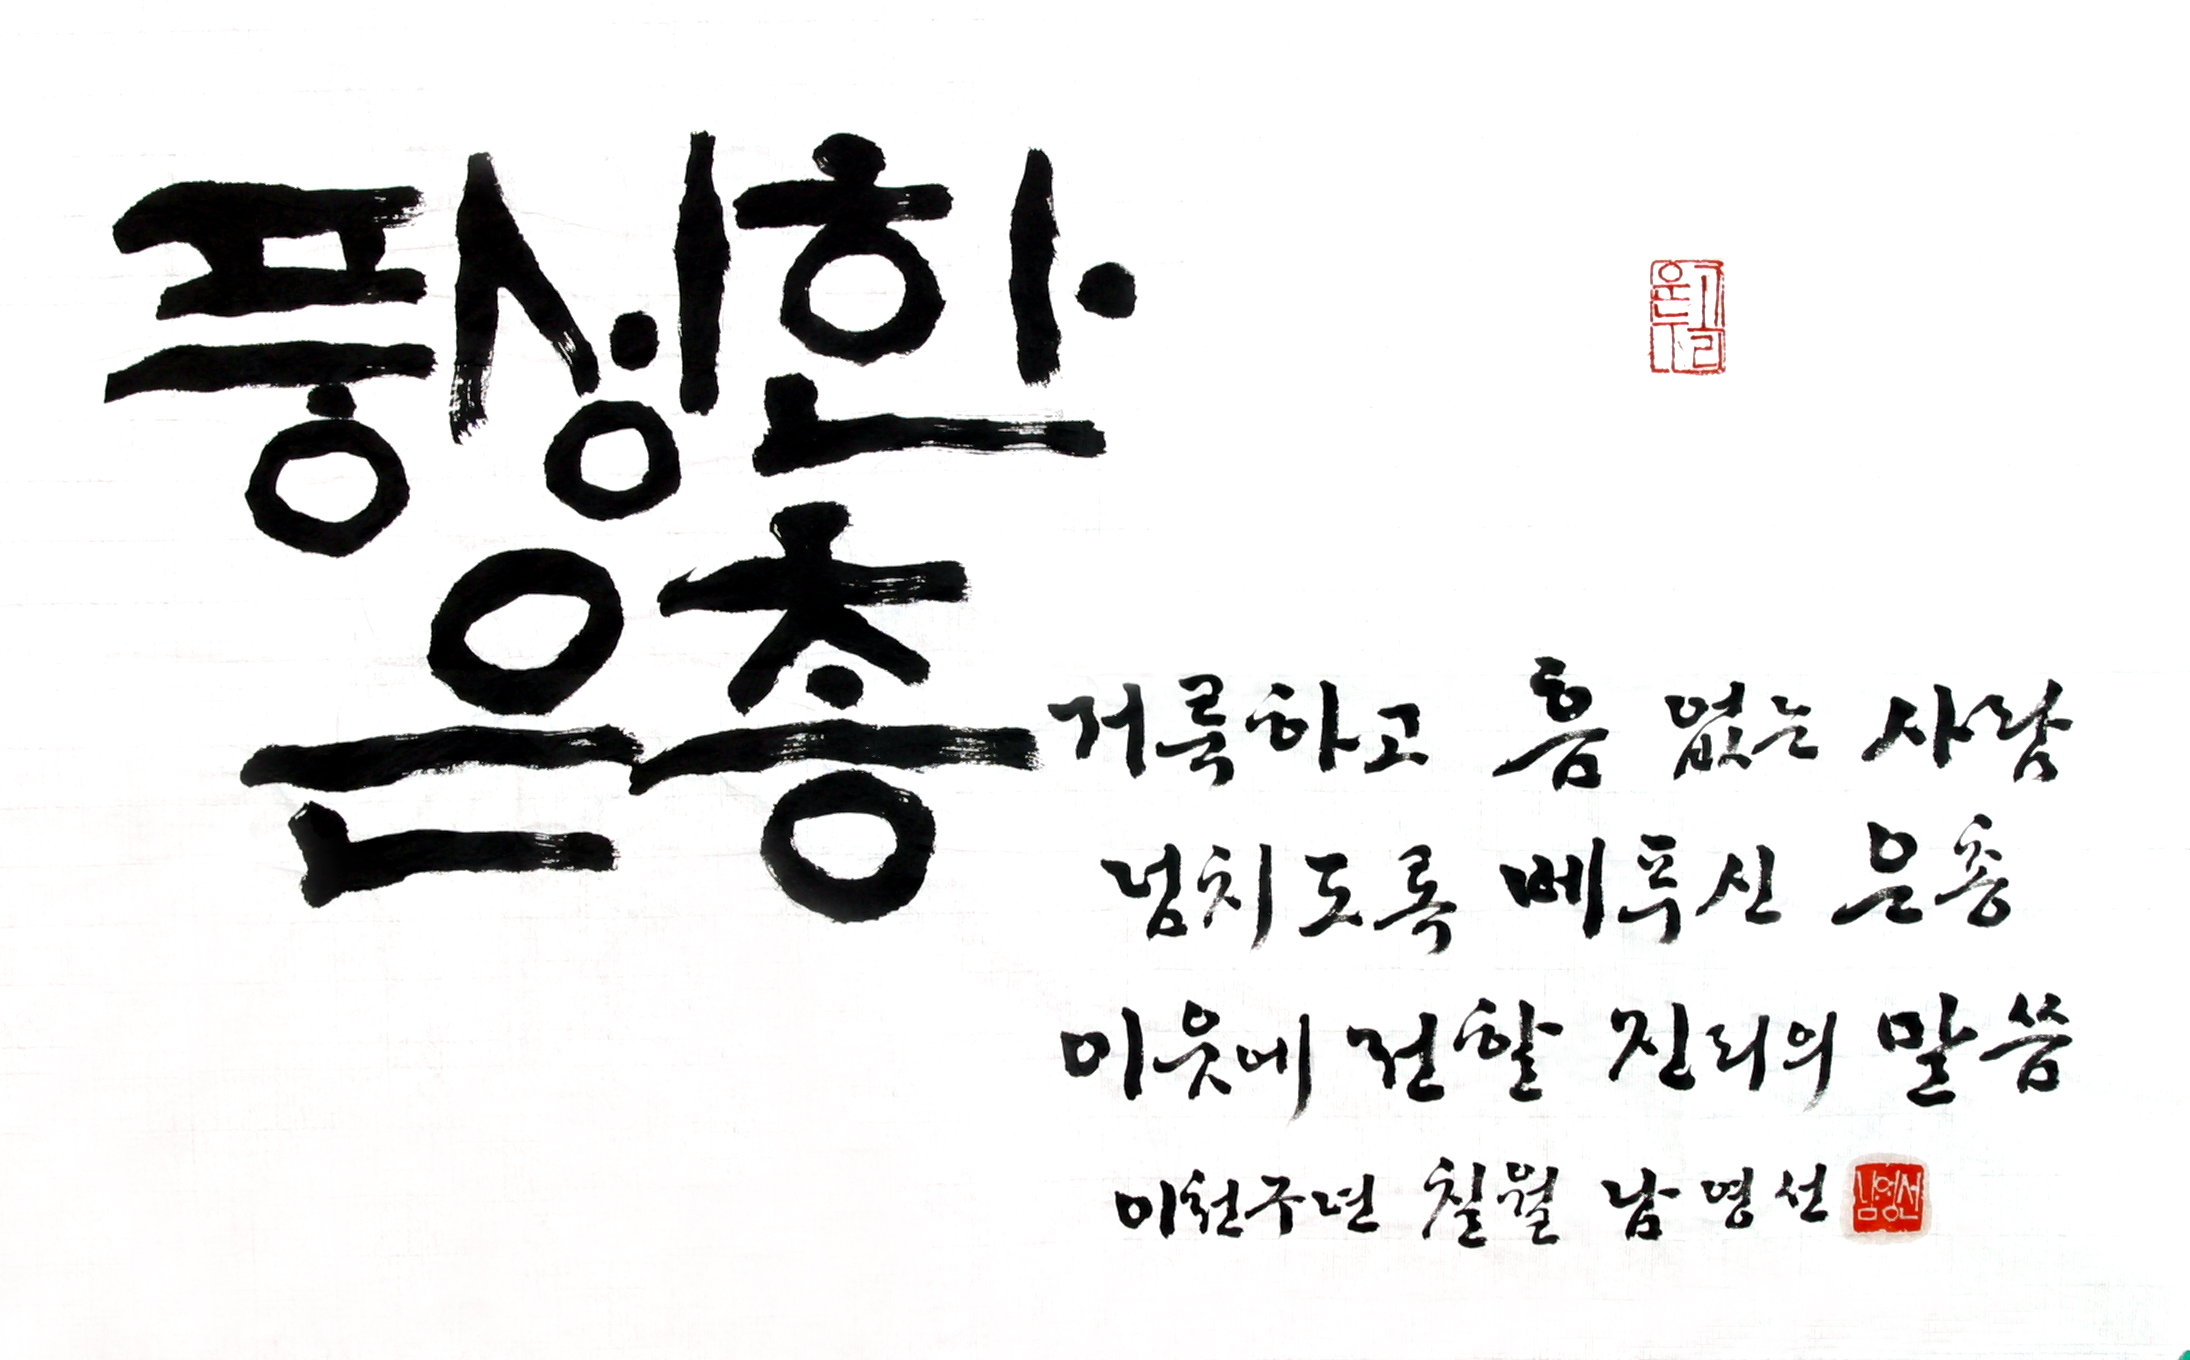 풍성한
은총
거룩하고 흠 없는 사람
넘치도록 베푸신 은총
이웃에 전할 진리의 말씀
이천구년 칠월 남영선
남영선